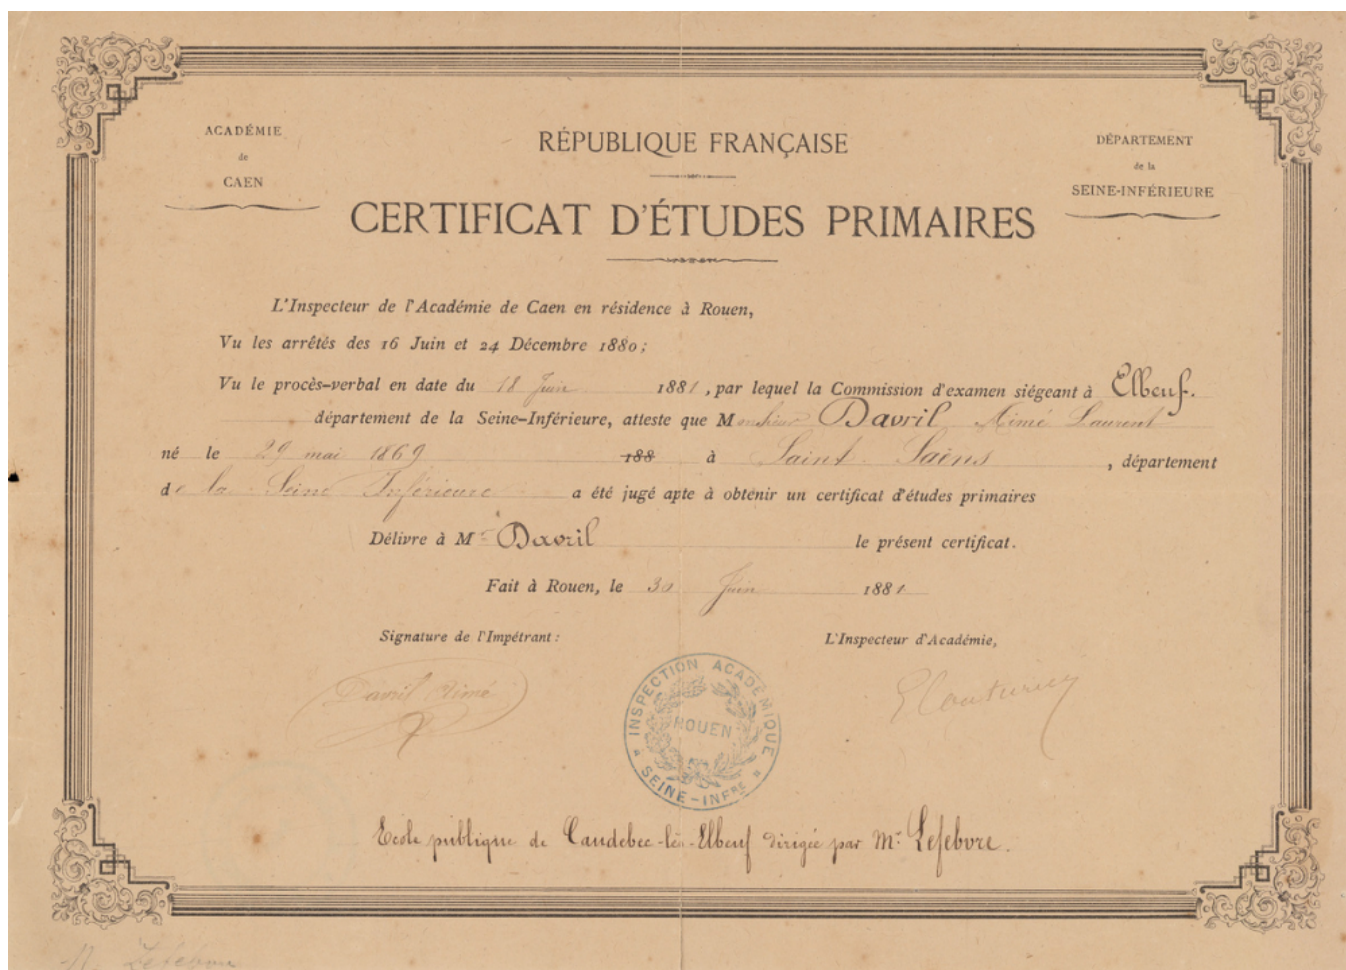 ACADÉMIE
de
CAEN
RÉPUBLIQUE FRANÇAISE
DÉPARTEMENT
de la
SEINE-INFÉRIEURE
CERTIFICAT D'ÉTUDES PRIMAIRES
L'Inspecteur de l'Académie de Caen en résidence à Rouen,
Vu les arrêtés des 16 Juin et 24 Décembre 1880;
Vu le procès-verbal en date du 18 Juin 1881, par lequel la Commission d'examen siégeant à Elbeuf.
département de la Seine-Inférieure, atteste que Monsieur Davril Aimé Laurent
né le 29 mai 1869 188 à Saint-Saëns, département
de la Seine Inférieure a été jugé apte à obtenir un certificat d'études primaires
Délivre à Mr Davril le présent certificat.
Fait à Rouen, le 30 Juin 1881
Signature de l'Impétrant:
L'Inspecteur d'Académie,
Davril Aimé
INSPECTION ACADÉMIQUE
ROUEN
SEINE-INFRE
Ecole publique de Caudebec-lès-Elbeuf dirigée par Mr Lefebvre.
Lefebvre